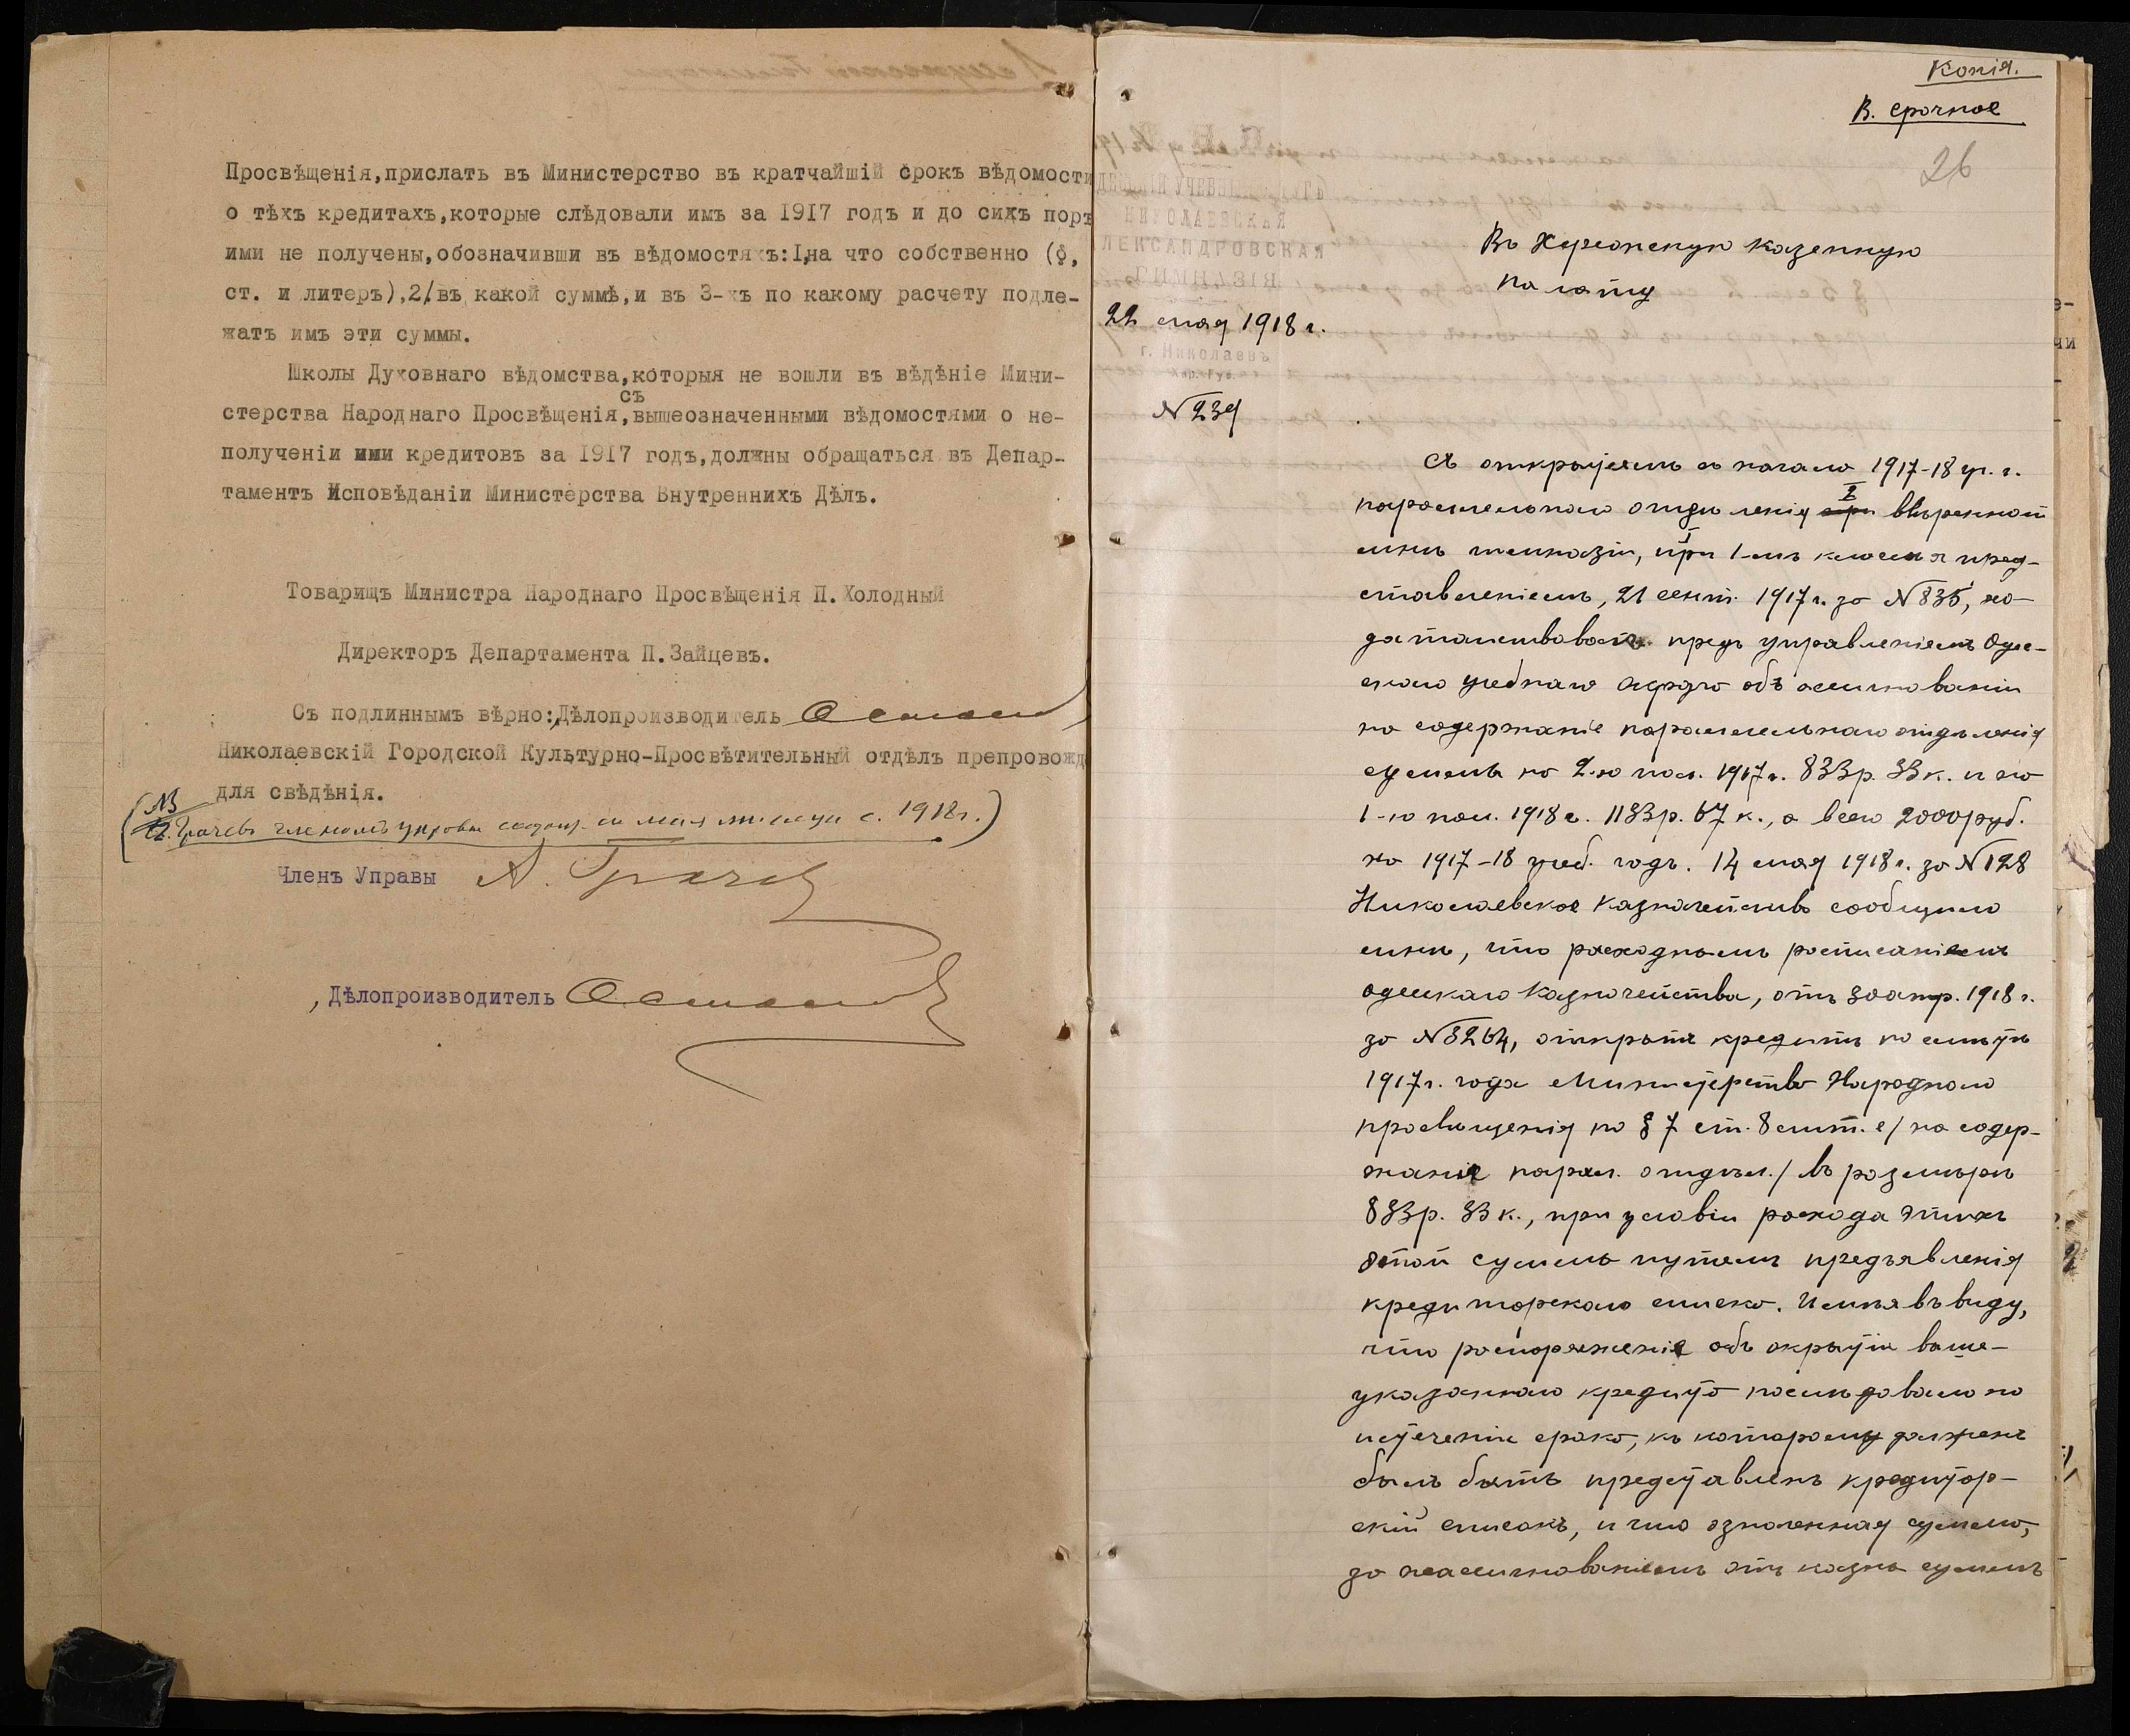 Просвѣщенія,прислать въ Министерство въ кратчайшій срокъ вѣдомости
о тѣхъ кредитахъ,которые слѣдовали имъ за 1917 годъ и до сихъ поръ
ими не получены,обозначивши въ вѣдомостяхъ:I,на что собственно (§,
ст. и литеръ),2/въ какой суммѣ,и въ 3-хъ по какому расчету подле-
жатъ имъ эти суммы.
Школы Духовнаго вѣдомства,которыя не вошли въ вѣдѣніе Мини-
съ
стерства Народнаго Просвѣщенія,вышеозначенными вѣдомостями о не-
полученіи ими кредитовъ за 1917 годъ,должны обращаться въ Депар-
таментъ Исповѣданіи Министерства Внутреннихъ Дѣлъ.
Товарищъ Министра Народнаго Просвѣщенія П.Холодный
Директоръ Департамента П.Зайцевъ.
Съ подлиннымъ вѣрно:Дѣлопроизводитель
Николаевскій Городской Культурно-Просвѣтительный отдѣлъ препровожд
для свѣдѣнія.
(NB Грачевъ членомъ управы с. 1918г.)
Членъ Управы А. Грачев
Дѣлопроизводитель
Копія.
В. срочное
26
Въ Херсонскую казенную
палату
УЧЕБН
НИКОЛАЕВСКАЯ
АЛЕКСАНДРОВСКАЯ
ГИМНАЗІЯ
22 мая 1918 г.
г. Николаевъ
Хер. Губ.
N 239
Съ открытіемъ съ начала 1917-18 уч. г.
параллельнаго отдѣленія ввѣренной
мнѣ гимназіи, при 1-мъ классѣ я пред-
ставленіемъ, 21 сент. 1917 г. за N 835, хо-
датайствовалъ предъ управленіемъ Одес-
скаго учебнаго округа объ ассигнованіи
на содержаніе параллельнаго отдѣленія
суммы на 2-ю пол. 1917 г. 833р. 33к. и на
1-ю пол. 1918 г. 1183р. 67 к., а всего 2000 руб.
на 1917-18 учеб. годъ. 14 мая 1918 г. за N 128
Николаевское казначейство сообщило
мнѣ, что расходнымъ росписаніемъ
одесскаго казначейства, отъ 30 апр. 1918 г.
за N 3264, открытъ кредитъ по смѣтѣ
1917 г. года Министерства Народнаго
просвѣщенія по § 7 ст. 8 лит. е/ на содер-
жаніе парал. отдѣл./ въ размѣрѣ
833р. 33 к., при условіи расхода этихъ
этой суммы путемъ предъявленія
кредиторскаго списка. Имѣя въ виду,
что распоряженіе объ окрытіи выше-
указаннаго кредита послѣдовало по
истеченіи срока, къ которому долженъ
былъ быть представленъ кредитор-
скій списокъ, и что означенная сумма,
за неассигнованіемъ отъ казны суммъ